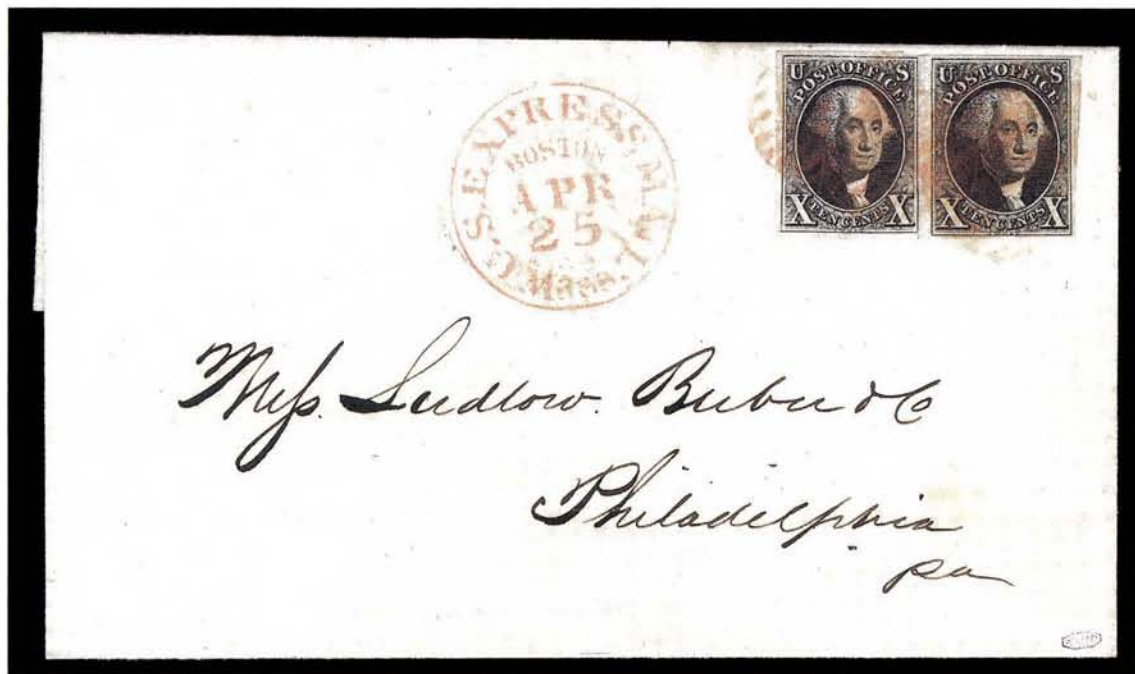 U.S. EXPRESS MAIL
BOSTON
APR
25
Mass.
U S
POST OFFICE
X TEN CENTS X
U S
POST OFFICE
X TEN CENTS X
Mess. Ludlow. & Co
Philadelphia
pa